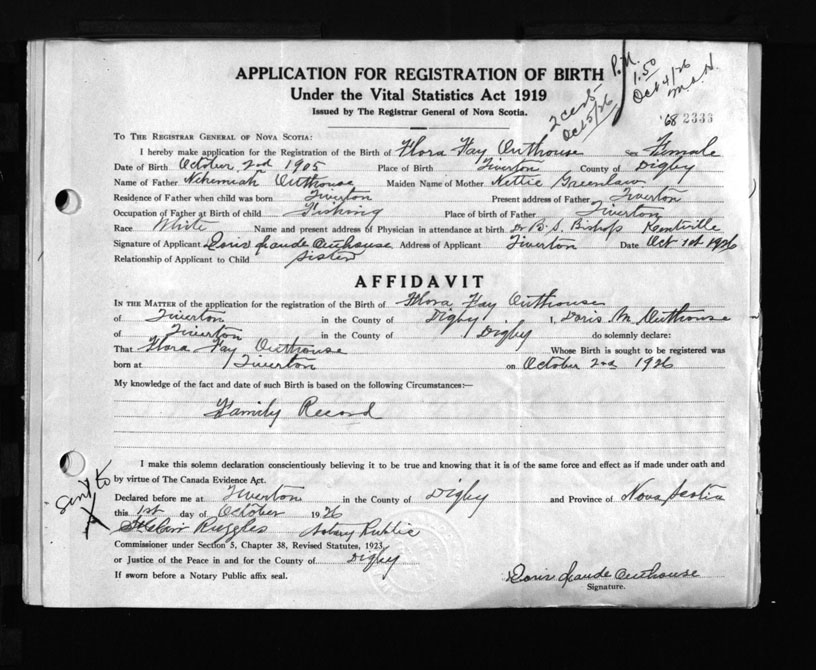 APPLICATION FOR REGISTRATION OF BIRTH P.M.
Under the Vital Statistics Act 1919 1.50
Issued by The Registrar General of Nova Scotia. 2 certs Oct 5/26 Oct 4/26
'68 2336
TO THE REGISTRAR GENERAL OF NOVA SCOTIA:
I hereby make application for the Registration of the Birth of Flora Fay Outhouse Sex Female
Date of Birth October 2nd 1905 Place of Birth Tiverton County of Digby
Name of Father Nehemiah Outhouse Maiden Name of Mother Nettie Greenlaw
Residence of Father when child was born Tiverton Present address of Father Tiverton
Occupation of Father at Birth of child Fishing Place of birth of Father Tiverton
Race White Name and present address of Physician in attendance at birth Dr B. S. Bishop Kentville
Signature of Applicant Doris Maude Outhouse Address of Applicant Tiverton Date Oct 1st 1926
Relationship of Applicant to Child Sister
AFFIDAVIT
IN THE MATTER of the application for the registration of the Birth of Flora Fay Outhouse
of Tiverton in the County of Digby I, Doris M. Outhouse
of Tiverton in the County of Digby do solemnly declare:
That Flora Fay Outhouse Whose Birth is sought to be registered was
born at Tiverton on October 2nd 1926
My knowledge of the fact and date of such Birth is based on the following Circumstances:—
Family Record
I make this solemn declaration conscientiously believing it to be true and knowing that it is of the same force and effect as if made under oath and
by virtue of The Canada Evidence Act.
Declared before me at Tiverton in the County of Digby and Province of Nova Scotia
this 1st day of October 1926
Ruggles Notary Public
Commissioner under Section 5, Chapter 38, Revised Statutes, 1923,
or Justice of the Peace in and for the County of Digby
If sworn before a Notary Public affix seal.
Doris Maude Outhouse
Signature.